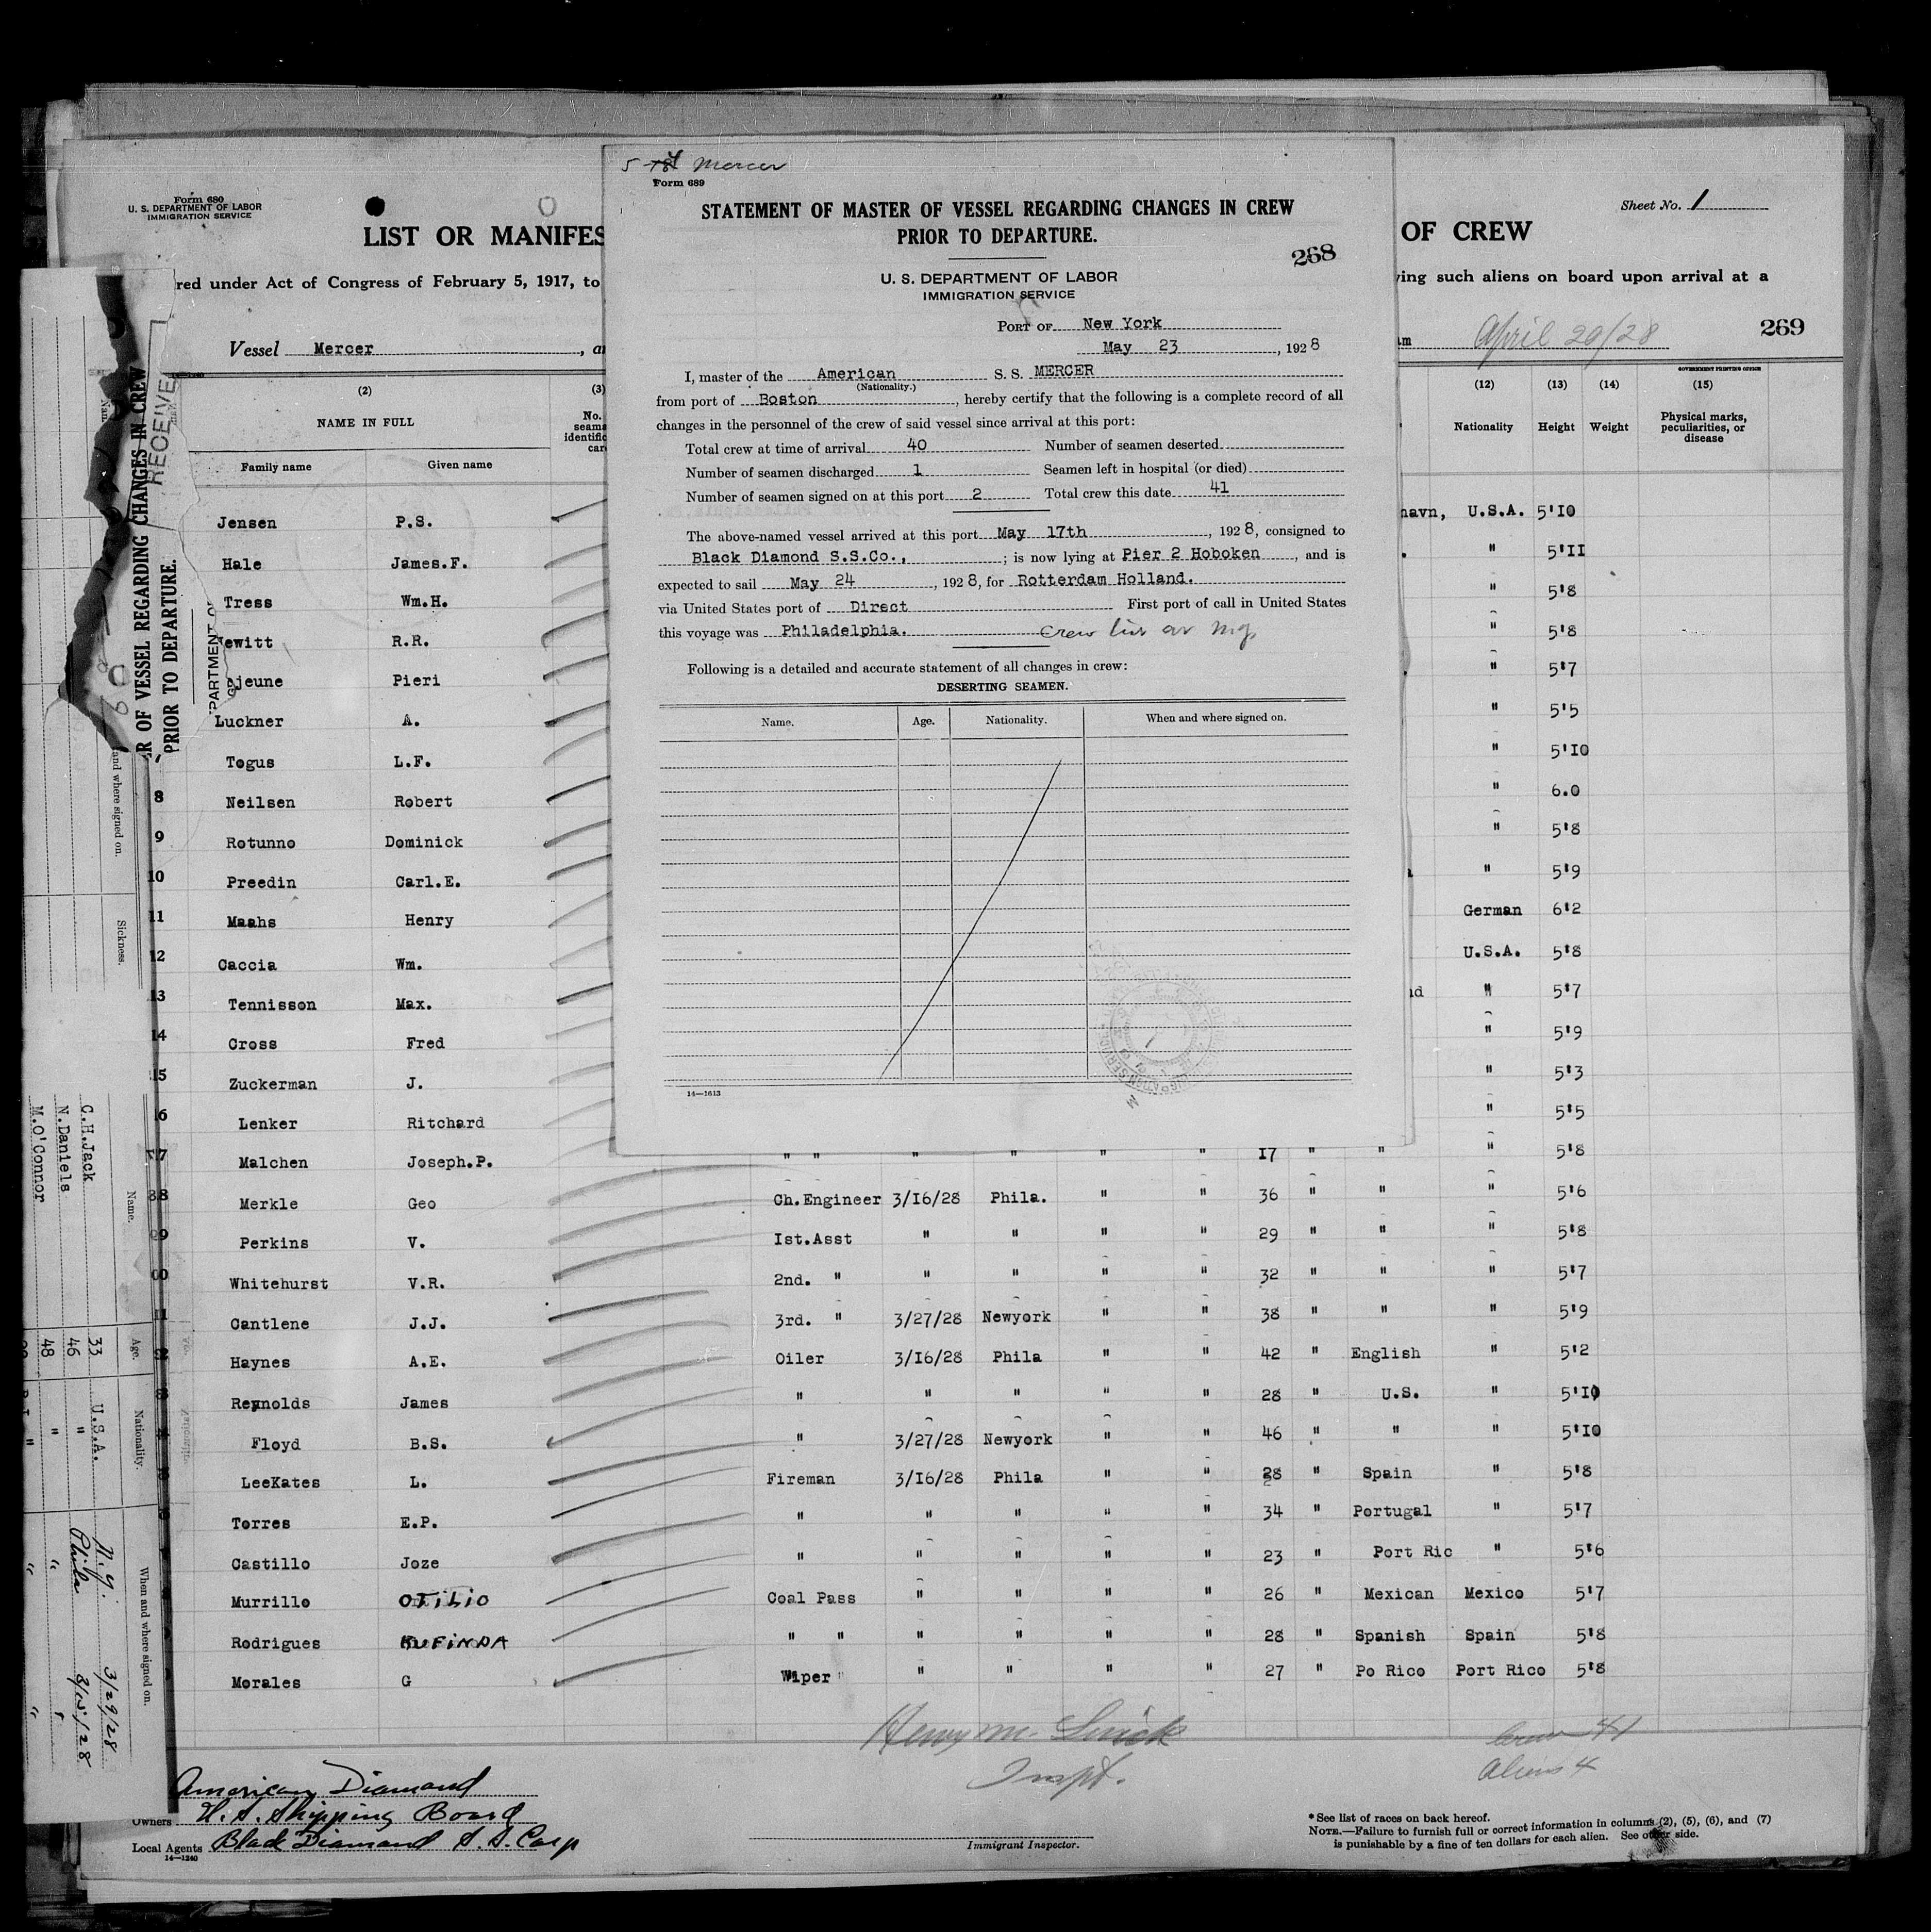 5 Mercer
Form 689
STATEMENT OF MASTER OF VESSEL REGARDING CHANGES IN CREW
PRIOR TO DEPARTURE.
268
U. S. DEPARTMENT OF LABOR
IMMIGRATION SERVICE
PORT OF New York
May 23, 1928
I, master of the American S. S. MERCER
(Nationality.)
from port of Boston, hereby certify that the following is a complete record of all
changes in the personnel of the crew of said vessel since arrival at this port:
Total crew at time of arrival 40 Number of seamen deserted
Number of seamen discharged 1 Seamen left in hospital (or died)
Number of seamen signed on at this port 2 Total crew this date 41
The above-named vessel arrived at this port May 17th, 1928, consigned to
Black Diamond S.S.Co., ; is now lying at Pier 2 Hoboken, and is
expected to sail May 24, 1928, for Rotterdam Holland.
via United States port of Direct First port of call in United States
this voyage was Philadelphia. Crew
Following is a detailed and accurate statement of all changes in crew:
DESERTING SEAMEN.
Name. Age. Nationality. When and where signed on.
14—1613
Form 680
U. S. DEPARTMENT OF LABOR
IMMIGRATION SERVICE
Sheet No. 1
LIST OR MANIFES OF CREW
red under Act of Congress of February 5, 1917, to ing such aliens on board upon arrival at a
Vessel Mercer April 20/28 269
GOVERNMENT PRINTING OFFICE
(2) (3) (12) (13) (14) (15)
NAME IN FULL Nationality Height Weight Physical marks, peculiarities, or disease
Family name Given name
Jensen P.S. havn, U.S.A. 5'10
Hale James.F. " 5'11
Tress Wm.H. " 5'8
ewitt R.R. " 5'8
jeune Pieri " 5'7
Luckner A. " 5'5
7 Togus L.F. " 5'10
8 Neilsen Robert " 6.0
9 Rotunno Dominick " 5'8
10 Preedin Carl.E. " 5'9
11 Maahs Henry German 6'2
12 Caccia Wm. U.S.A. 5'8
13 Tennisson Max. " 5'7
14 Cross Fred " 5'9
15 Zuckerman J. " 5'3
16 Lenker Ritchard " 5'5
17 Malchen Joseph.P. " " " " " " 17 " " " 5'8
Merkle Geo Ch.Engineer 3/16/28 Phila. " " 36 " " " 5'6
Perkins V. Ist.Asst " " " " 29 " " " 5'8
Whitehurst V.R. 2nd. " " " " " 32 " " " 5'7
Cantlene J.J. 3rd. " 3/27/28 Newyork " " 38 " " " 5'9
Haynes A.E. Oiler 3/16/28 Phila " " 42 " English " 5'2
Reynolds James " " " " " 28 " U.S. " 5'10
Floyd B.S. " 3/27/28 Newyork " " 46 " " " 5'10
LeeKates L. Fireman 3/16/28 Phila " " 28 " Spain " 5'8
Torres E.P. " " " " " 34 " Portugal " 5'7
Castillo Joze " " " " " 23 " Port Ric " 5'6
Murrillo OTiLiO Coal Pass " " " " 26 " Mexican Mexico 5'7
Rodrigues RUFINDA " " " " " " 28 " Spanish Spain 5'8
Morales G Wiper " " " " " 27 " Po Rico Port Rico 5'8
Inspt.
Crew 41
Aliens 4
American Diamond
Owners U.S. Shipping Board
Local Agents Black Diamond S.S. Corp
14—1240
Immigrant Inspector.
*See list of races on back hereof.
NOTE.—Failure to furnish full or correct information in columns (2), (5), (6), and (7)
is punishable by a fine of ten dollars for each alien. See other side.
R OF VESSEL REGARDING CHANGES IN CREW
PRIOR TO DEPARTURE.
RECEIVE
PARTMENT OF
and where signed on.
Sickness.
Name. Age. Nationality. When and where signed on.
C.H.Jack 33 U.S.A. N.Y. 3/29/28
N.Daniels 46 " Phila 3/15/28
M.O'Connor 48 " " "